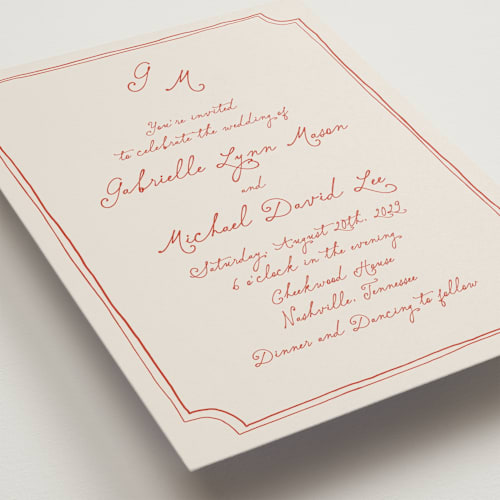 G M
You're invited
to celebrate the wedding of
Gabrielle Lynn Mason
and
Michael David Lee
Saturday, August 20th, 2039
6 o'clock in the evening
Cheekwood House
Nashville, Tennessee
Dinner and Dancing to follow